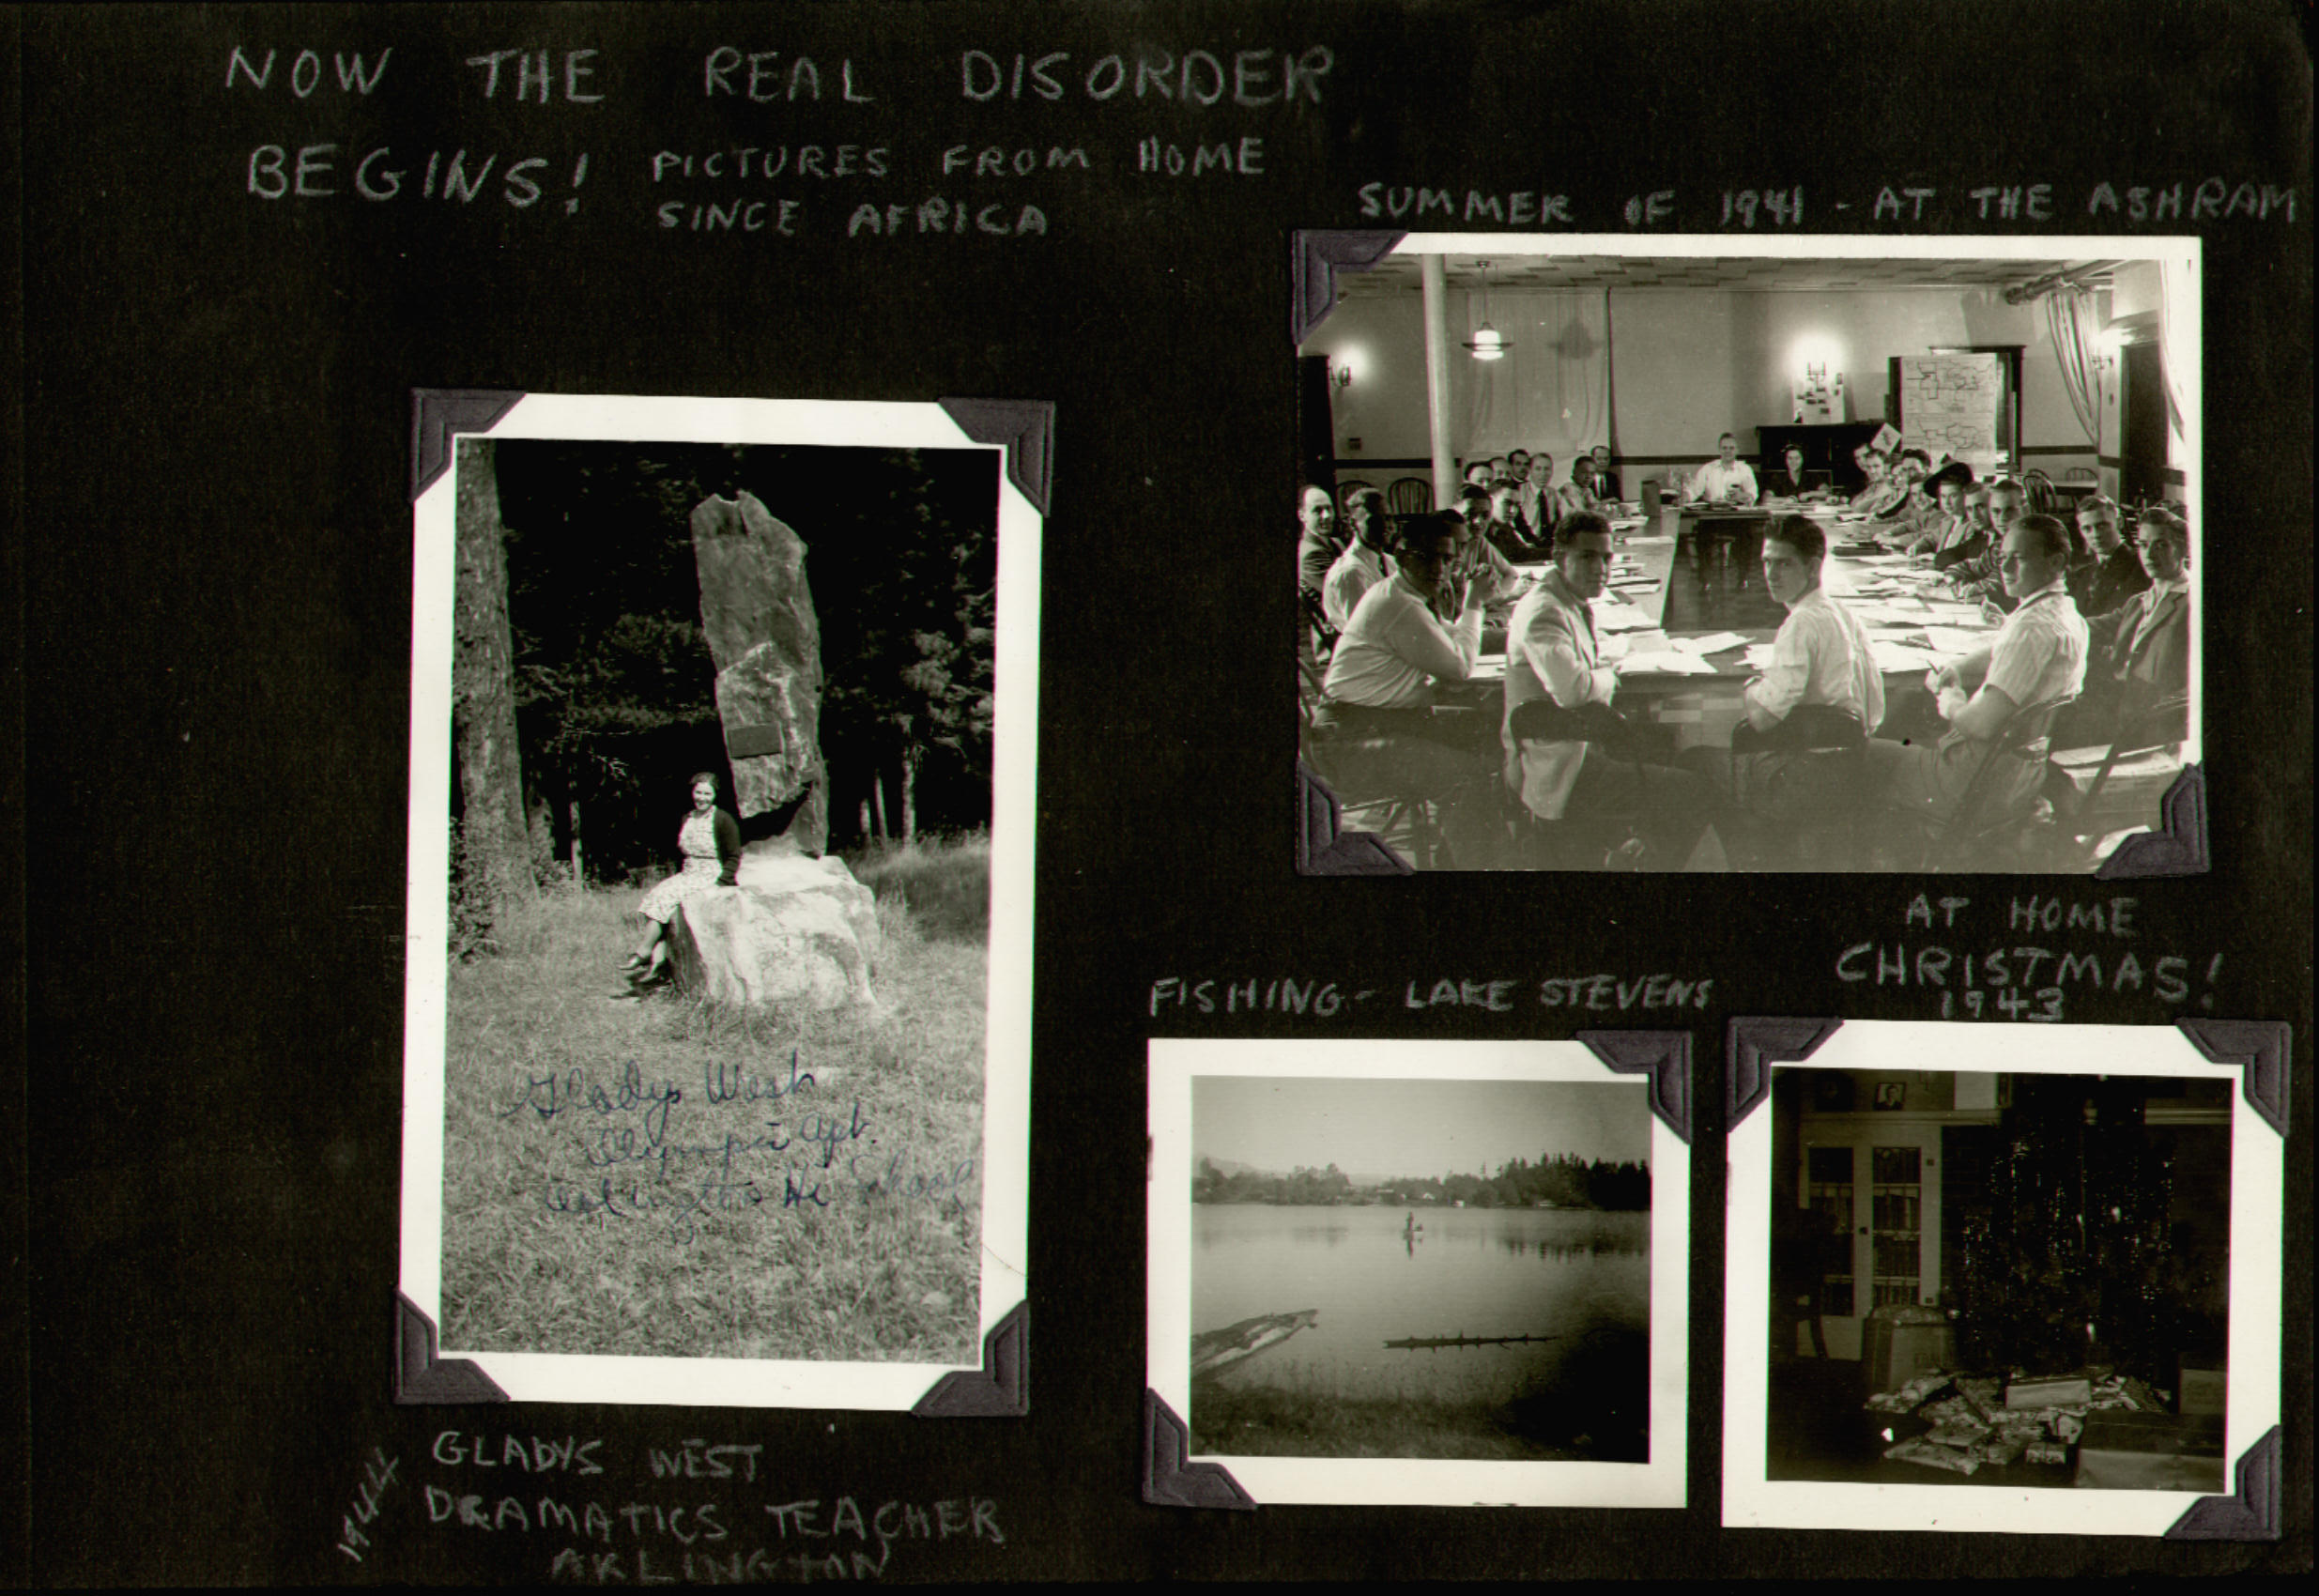 NOW THE REAL DISORDER
BEGINS! PICTURES FROM HOME
SINCE AFRICA
SUMMER OF 1941 - AT THE ASHRAM
Gladys West
Olympia Apt.
Arlington Hi School
GLADYS WEST
1944 DRAMATICS TEACHER
ARLINGTON
FISHING - LAKE STEVENS
AT HOME
CHRISTMAS!
1943